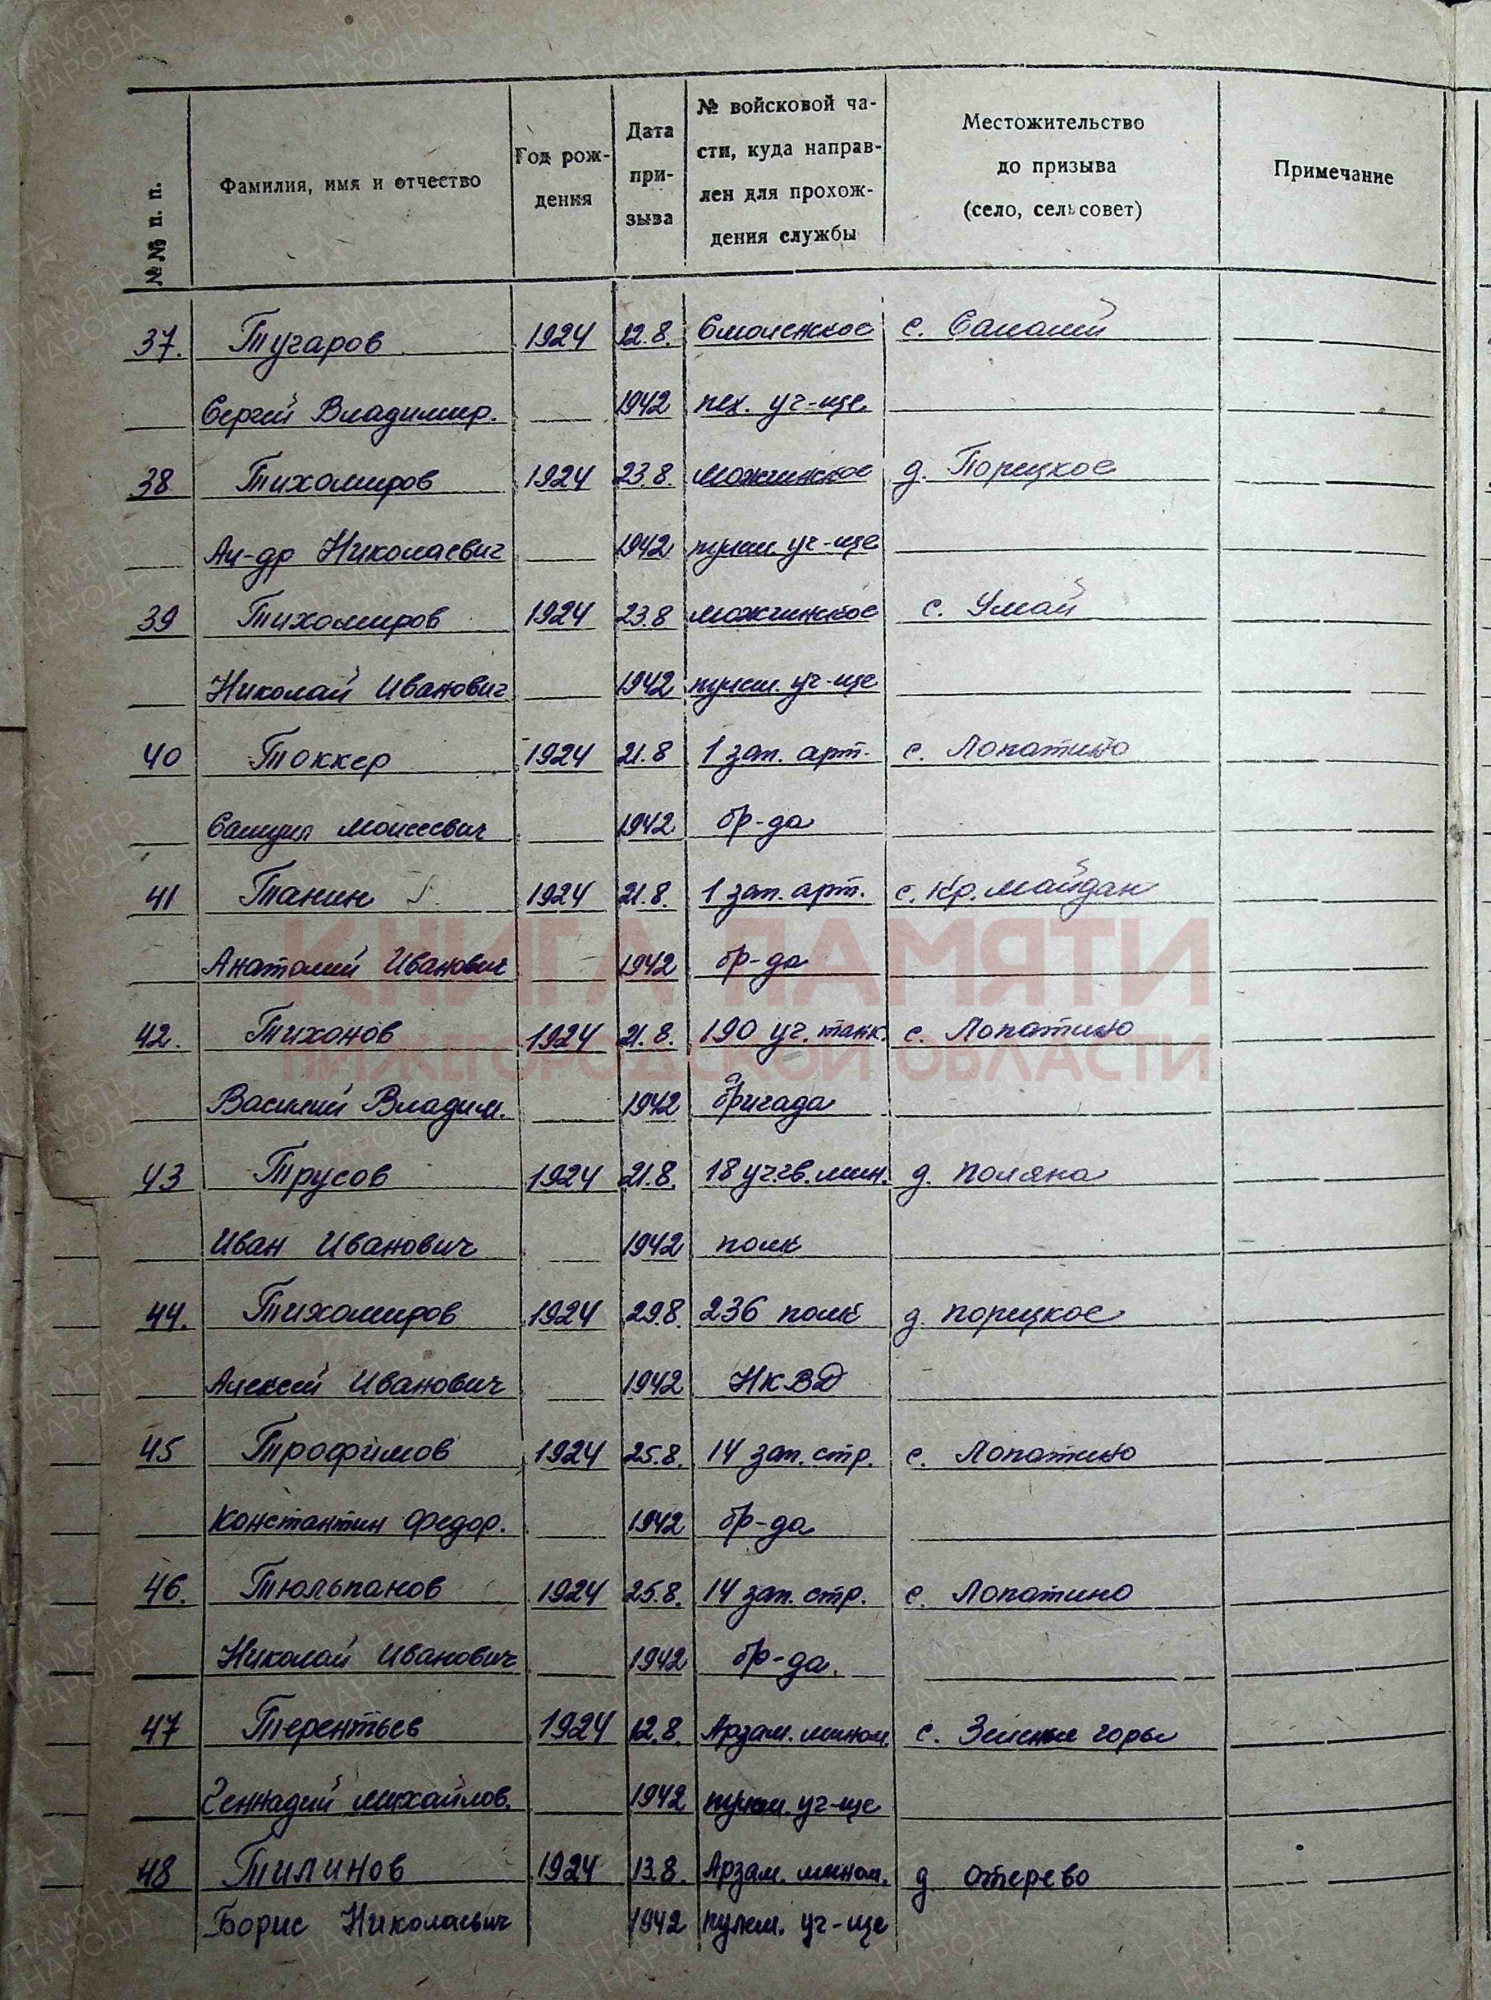 №№ п. п. Фамилия, имя и отчество Год рождения Дата призыва № войсковой части, куда направлен для прохождения службы Местожительство до призыва (село, сельсовет) Примечание
37. Тугаров 1924 22.8. Смоленское с.
Сергей Владимир. 1942 пех. уч-ще
38 Тихомиров 1924 23.8. Можгинское д. Порецкое
Ал-др Николаевич 1942 пулем. уч-ще
39 Тихомиров 1924 23.8 Можгинское с. Умай
Николай Иванович 1942 пулем. уч-ще
40 Токкер 1924 21.8 1 зап. арт. с. Лопатино
Самуил Моисеевич 1942 бр-да
41 Танин 1924 21.8. 1 зап. арт. с. Кр. Майдан
Анатолий Иванович 1942 бр-да
КНИГА ПАМЯТИ
42. Тихонов 1924 21.8. 190 уч. танк. с. Лопатино
НИЖЕГОРОДСКОЙ ОБЛАСТИ
Василий Владим. 1942 бригада
43 Трусов 1924 21.8. 18 уч.гв. мин. д. Поляна
Иван Иванович 1942 полк
44. Тихомиров 1924 29.8. 236 полк д. Порецкое
Алексей Иванович 1942 НКВД
45 Трофимов 1924 25.8. 14 зап. стр. с. Лопатино
Константин Федор. 1942 бр-да
46. Тюльпанов 1924 25.8. 14 зап. стр. с. Лопатино
Николай Иванович 1942 бр-да.
47 Терентьев 1924 12.8. Арзам. мином. с. Зеленые горы
Геннадий Михайлов. 1942 пулем. уч-ще
48 Тилинов 1924 13.8. Арзам. мином. д. Отерево
Борис Николаевич 1942 пулем. уч-ще